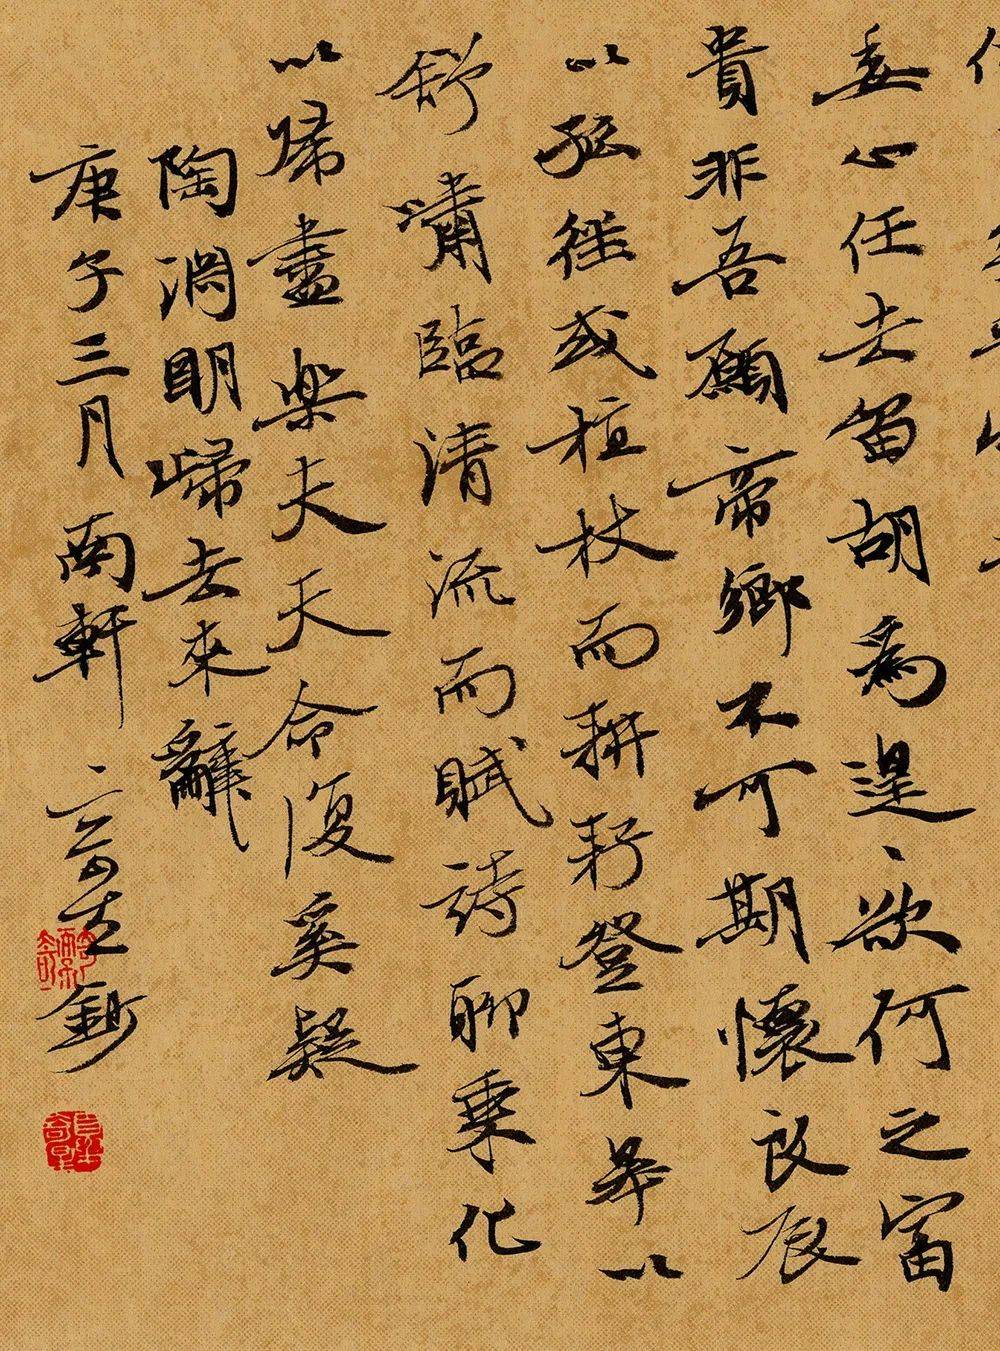 委心任去留胡為遑、欲何之富
貴非吾願帝鄉不可期懷良辰
以孤往或植杖而耕耔登東皋以
舒嘯臨清流而賦詩聊乘化
以歸盡樂夫天命復奚疑
陶淵明歸去來辭
庚子三月南軒 鈔